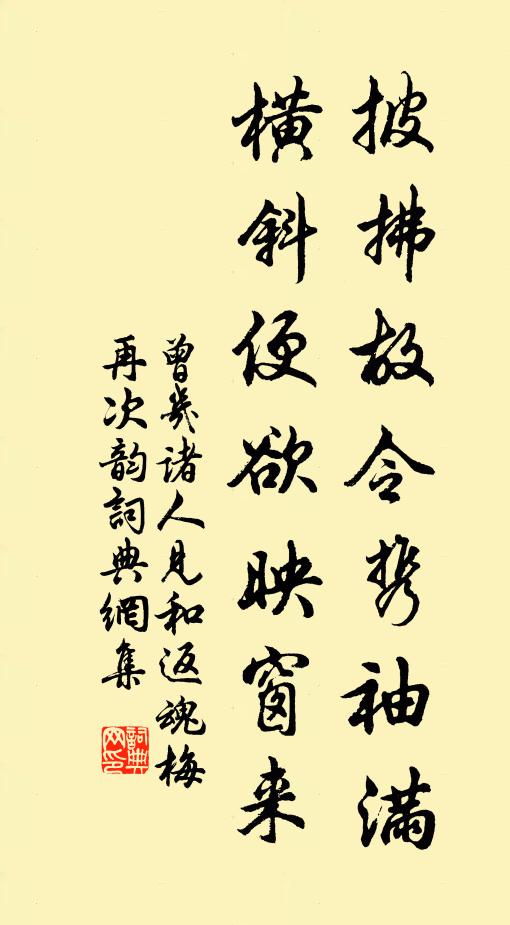 披拂故令携袖满
横斜便欲映窗来
曾幾诸人见和返魂梅
再次韵詞典網集
詞典
网印